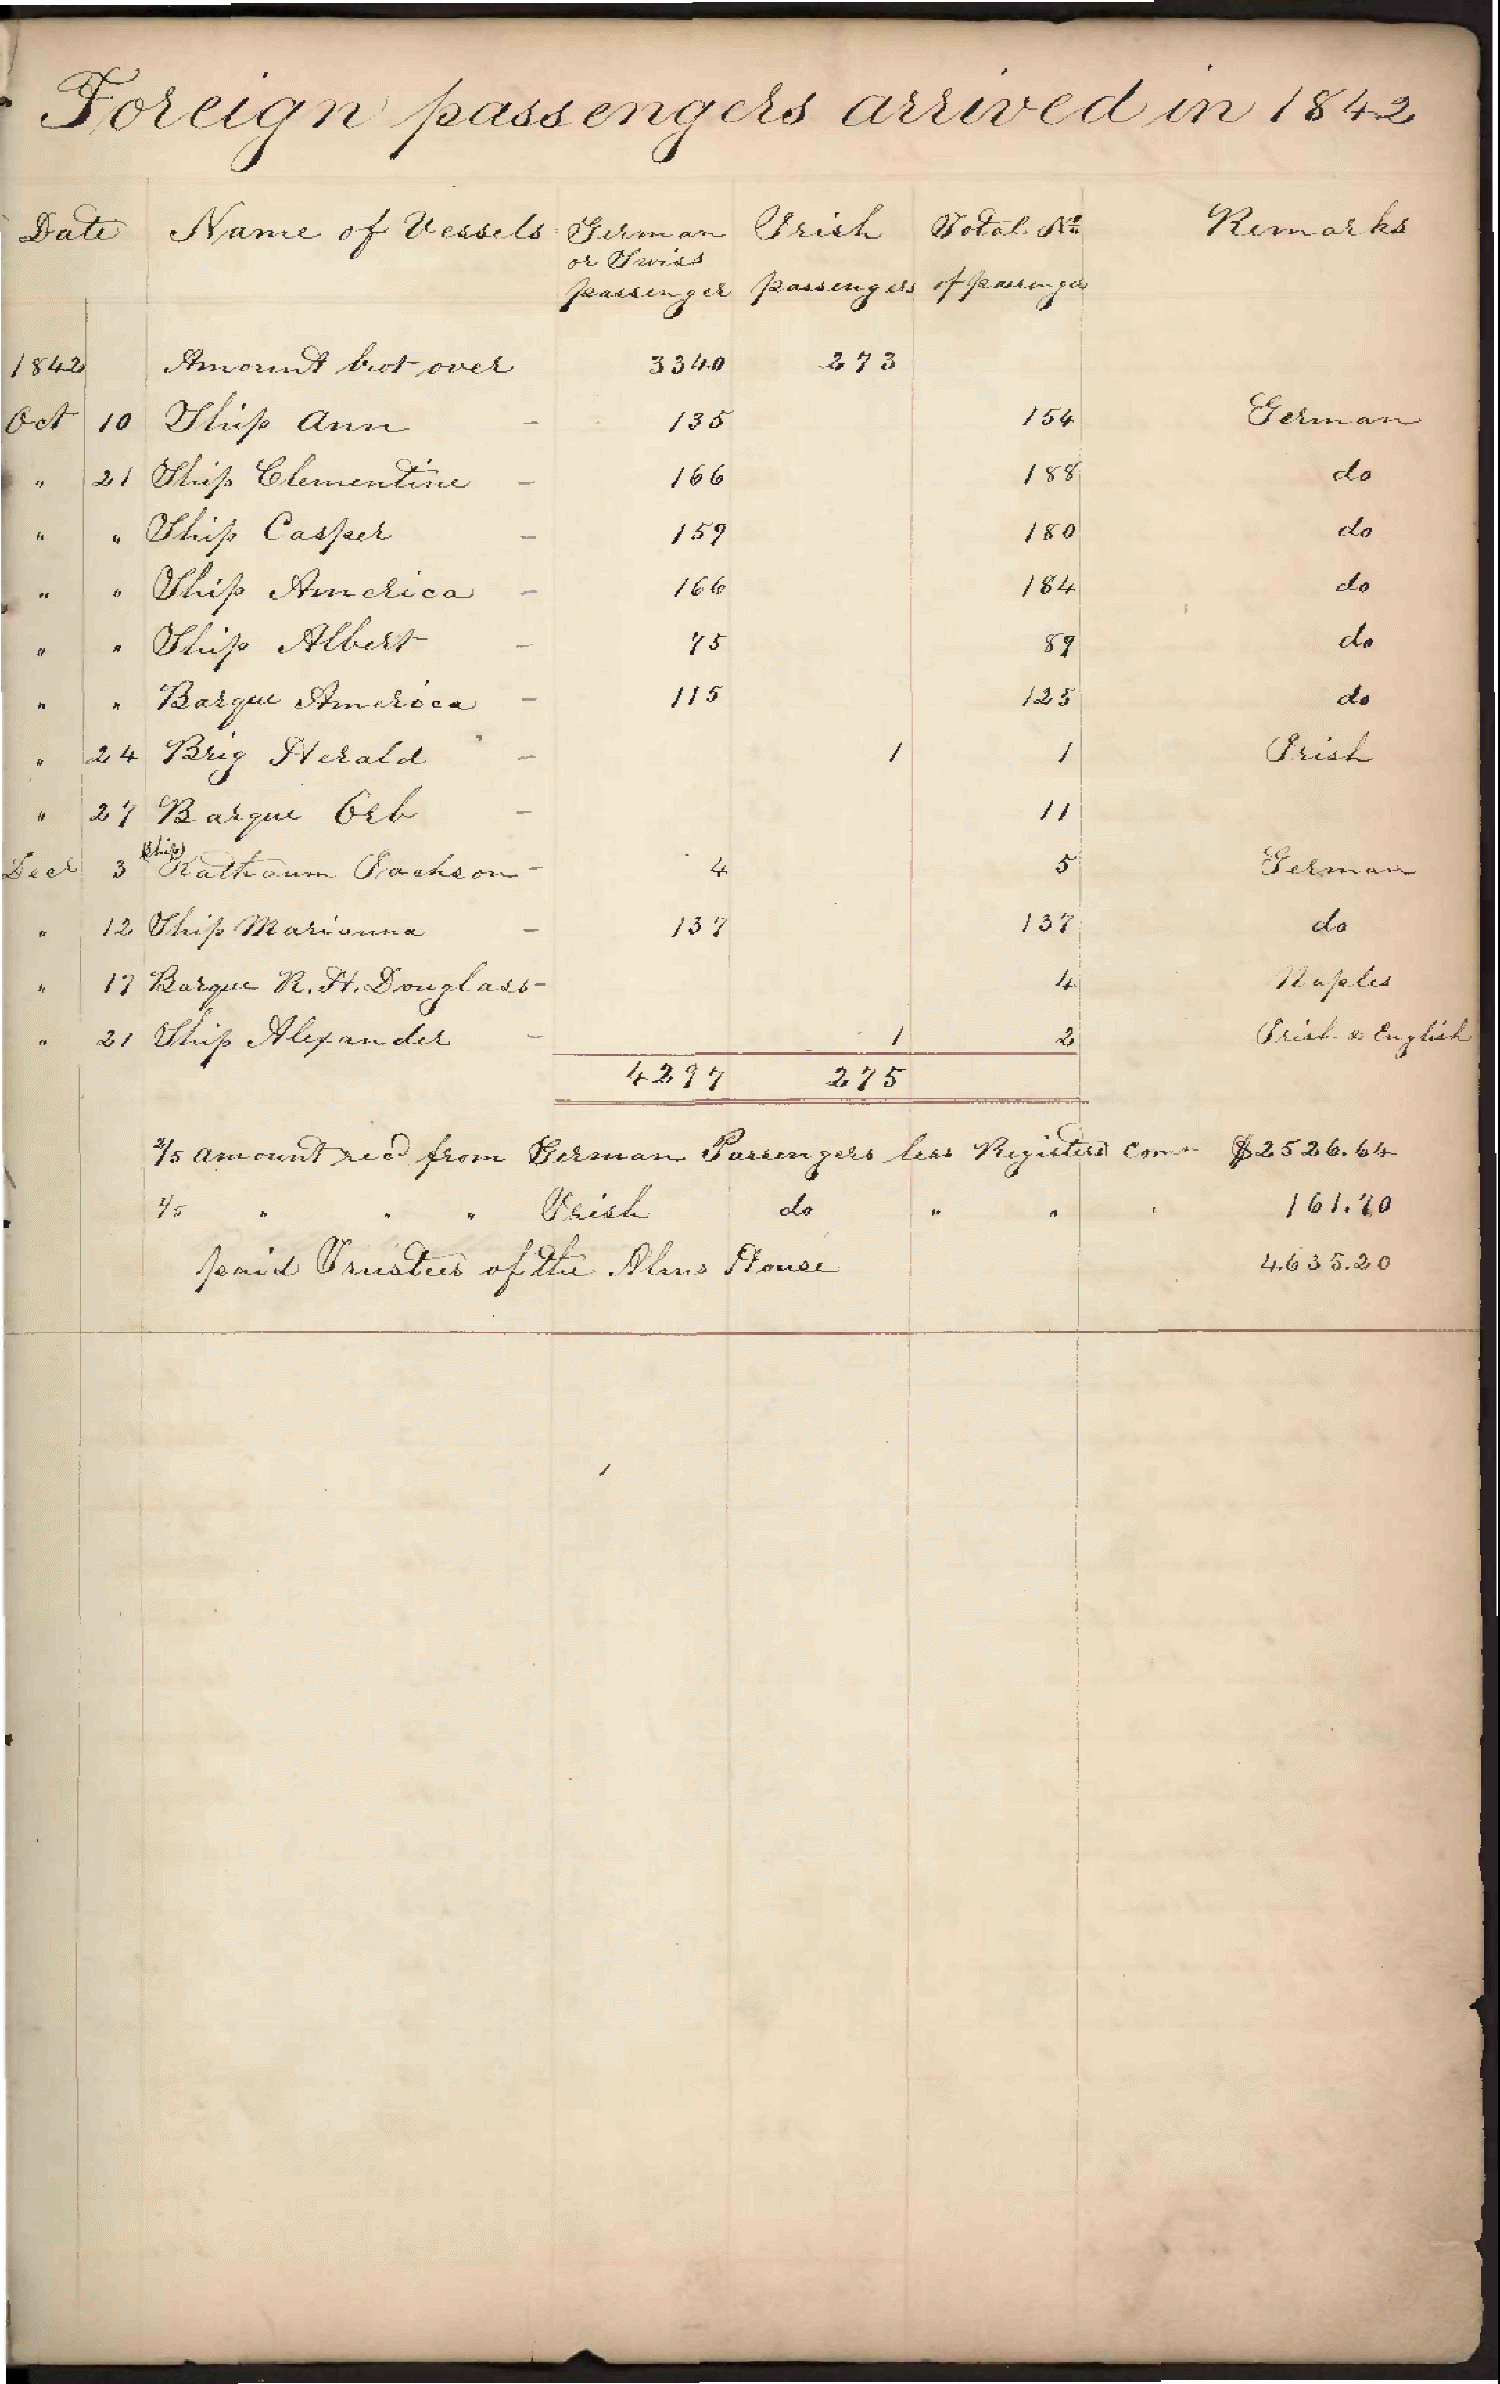 Foreign passengers arrived in 1842
Date Name of Vessels German or Swiss passenger Irish passengers Total No. of passenger Remarks
1842 Amount brot over 3340 273
Oct 10 Ship Ann - 135 154 German
" 21 Ship Clementine - 166 188 do
" " Ship Casper - 159 180 do
" " Ship America - 166 184 do
" " Ship Albert - 75 89 do
" " Barque America - 115 125 do
" 24 Brig Herald - 1 1 Irish
" 27 Barque Orb - 11
Decr 3 (Ship) Jackson - 4 5 German
" 12 Ship Marianna - 137 137 do
" 17 Barque R. H. Douglass - 4 Naples
" 21 Ship Alexander - 1 2 Irish & English
4297 275
2/5 amount recd from German Passengers less Registers Comn $2526.64
" " " Irish do " " " 161.70
paid Trustees of the Alms House 4.635.20